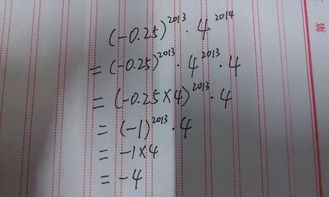 (-0.25)²⁰¹³ · 4²⁰¹⁴
= (-0.25)²⁰¹³ · 4²⁰¹³ · 4
= (-0.25×4)²⁰¹³ · 4
= (-1)²⁰¹³ · 4
= -1×4
= -4